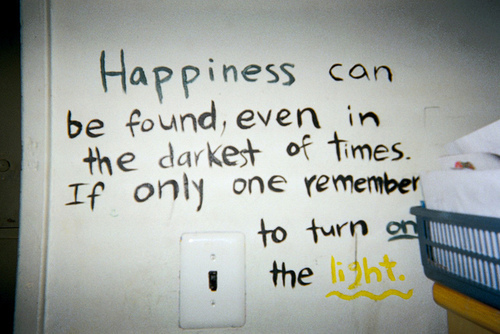 Happiness can
be found, even in
the darkest of times.
If only one remember
to turn on
the light.